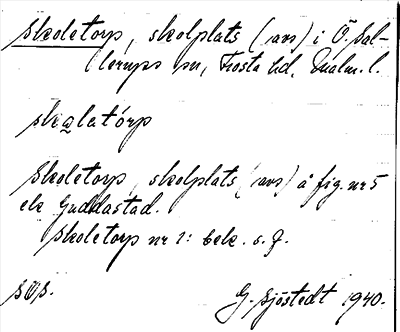 Skoletorp, skolplats (avs) i Ö. Sal-
lerups sn, Frosta hd, Malm. l.
skǫlatórp
Skoletorp, skolplats (avs) å fig. nr 5
ek Guddastad.
Skoletorp nr 1: bek. s. f.
G. Sjöstedt 1940.